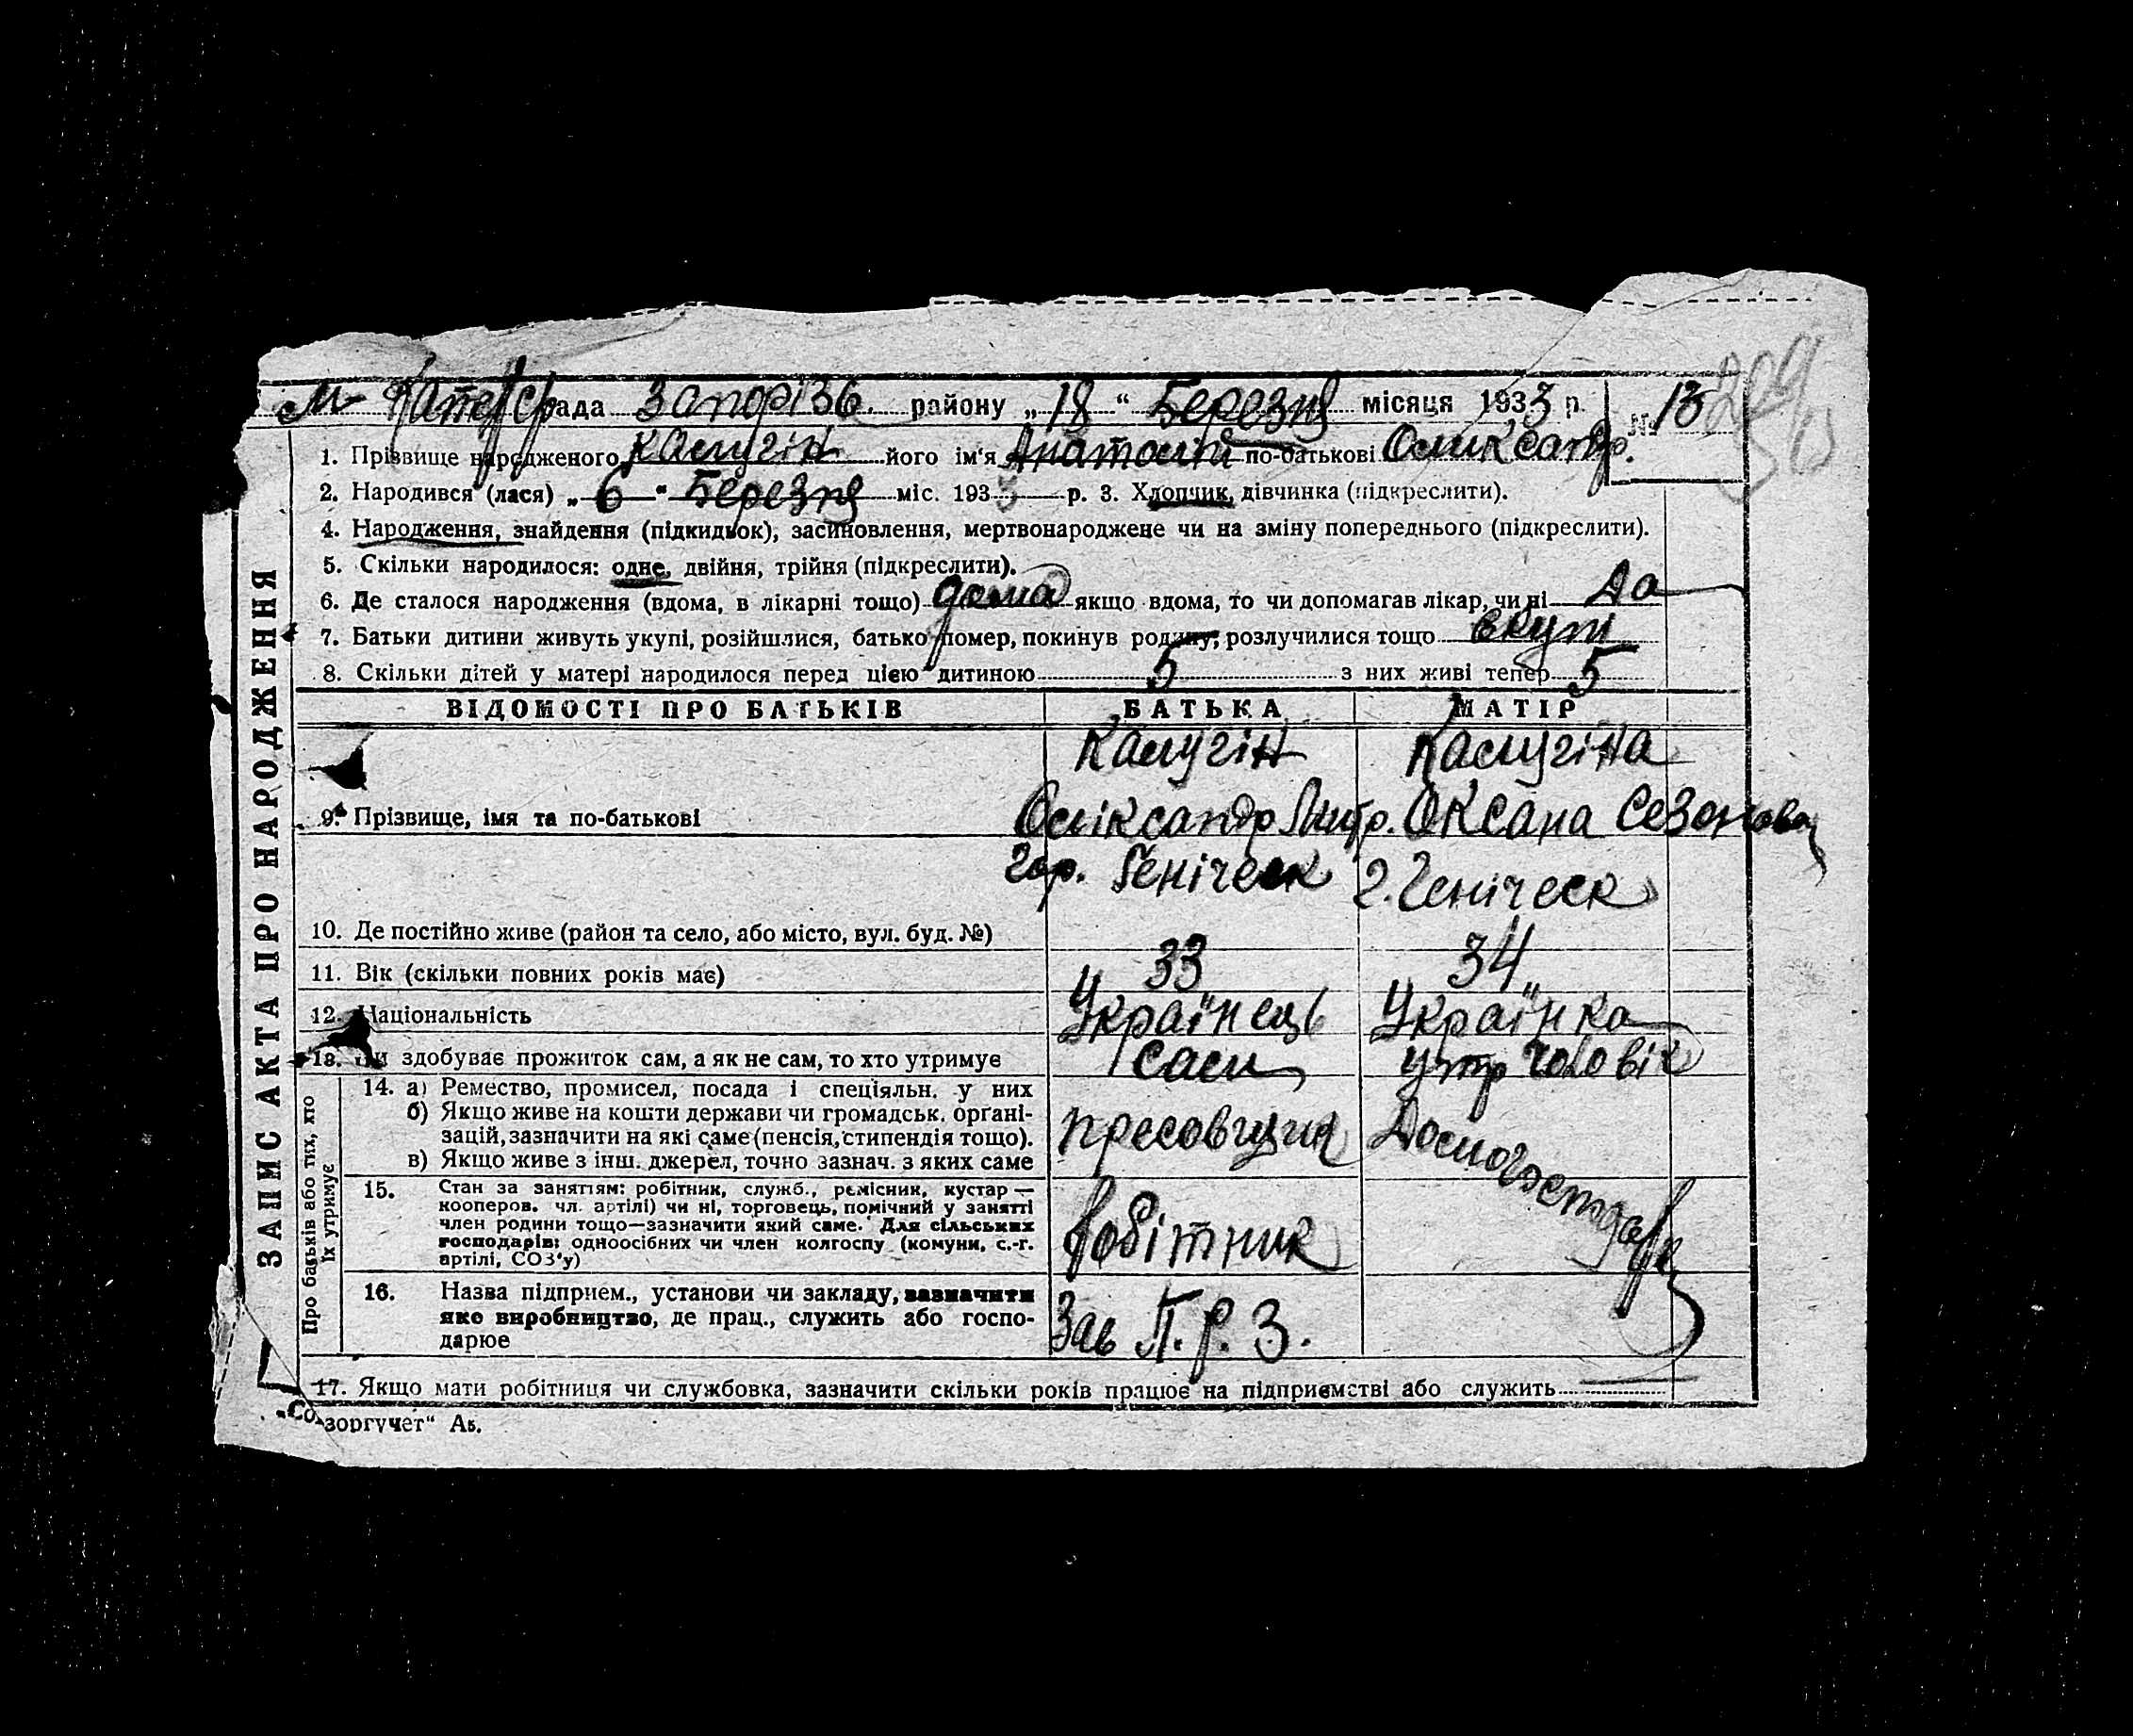 рада Запорізб. району „18“ Березня місяця 1933 р. № 13
1. Прізвище народженого Калугін його ім'я Анатолій по-батькові Оликсандр.
2. Народився (лася) „6“ Березня міс. 1933 р. 3. Хлопчик, дівчинка (підкреслити).
4. Народження, знайдення (підкидьок), засиновлення, мертвонароджене чи на зміну попереднього (підкреслити).
5. Скільки народилося: одне, двійня, трійня (підкреслити).
6. Де сталося народження (вдома, в лікарні тощо) дома якщо вдома, то чи допомагав лікар, чи ні Да
7. Батьки дитини живуть укупі, розійшлися, батько помер, покинув родину, розлучилися тощо вкупі
8. Скільки дітей у матері народилося перед цією дитиною 5 з них живі тепер 5
ВІДОМОСТІ ПРО БАТЬКІВ БАТЬКА МАТІР
Калугін Калугіна
9. Прізвище, імя та по-батькові Оліксандр Оксана
гор. Геніческ г. Геніческ
10. Де постійно живе (район та село, або місто, вул. буд. №)
11. Вік (скільки повних років має) 33 34
12. Національність Українець Українка
13. Чи здобуває прожиток сам, а як не сам, то хто утримує сам утр чоловік
14. а) Ремество, промисел, посада і спеціяльн. у них
б) Якщо живе на кошти держави чи громадськ. орґані-
зацій, зазначити на які саме (пенсія, стипендія тощо).
в) Якщо живе з інш. джерел, точно зазнач. з яких саме
пресовщик Домогосподарк
15. Стан за заняттям: робітник, служб., ремісник, кустар —
кооперов. чл. артілі) чи ні, торговець, помічний у занятті
член родини тощо—зазначити який саме. Для сільських
господарів: одноосібних чи член колгоспу (комуни, с.-г.
артілі, СОЗ'у)
робітник
16. Назва підприєм., установи чи закладу, зазначити
яке виробництво, де прац., служить або госпо-
дарює
Зав П. Р. З.
17. Якщо мати робітниця чи службовка, зазначити скільки років працює на підприємстві або служить
„Союзоргучет“ А5.
ЗАПИС АКТА ПРО НАРОДЖЕННЯ
Про батьків або тих, хто
їх утримує